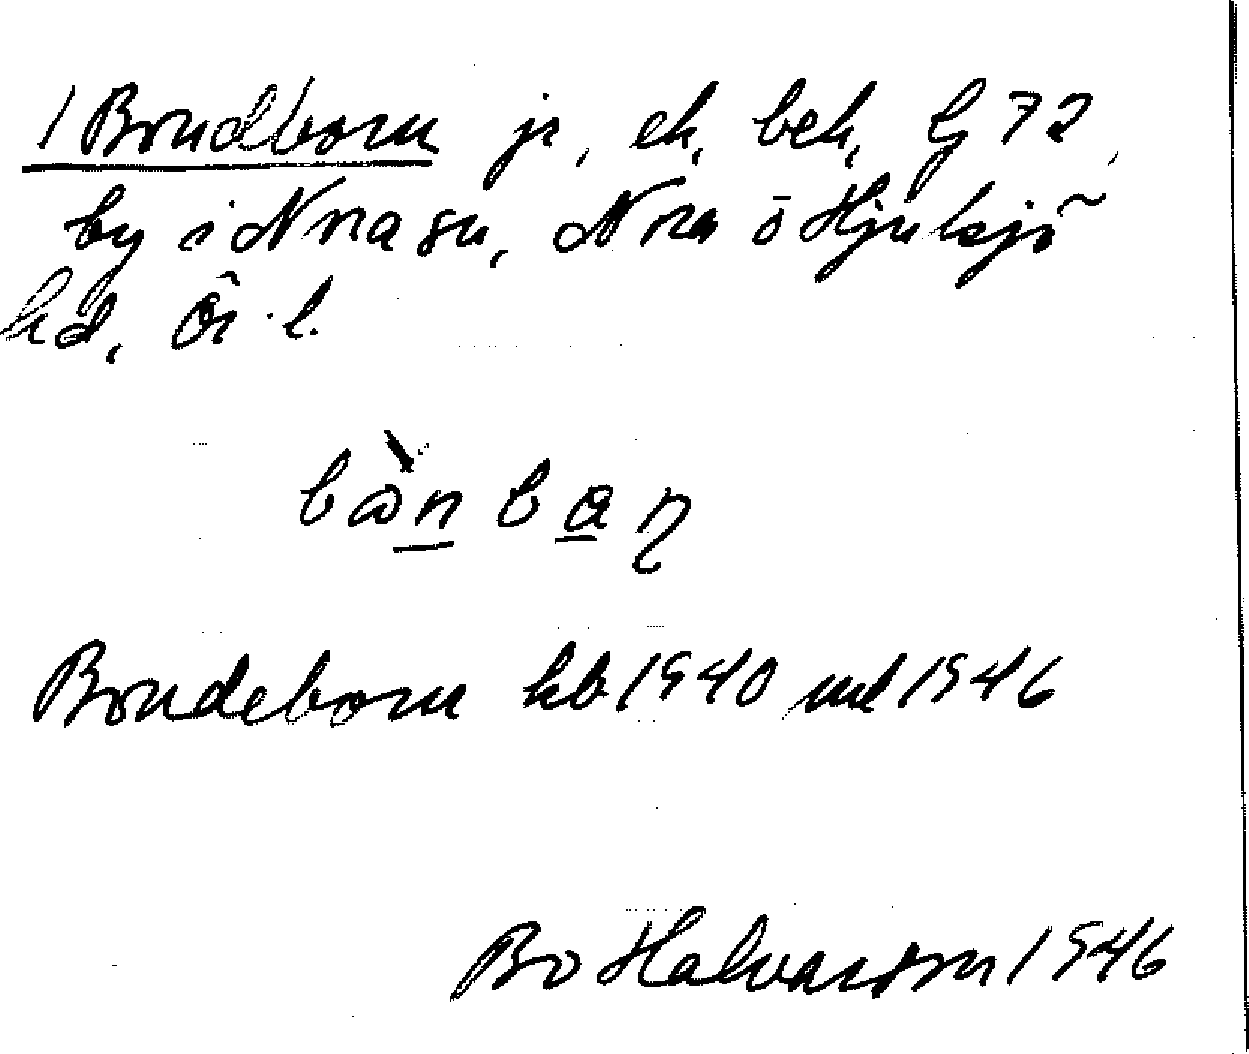 /Bondborn jr, ek, bek, G 72,
by i Nora sn, Nora o Hjulsjö
hd, Ör. l.
bån ban
Bondeborn kb 1940 ml 1946
Bo Halvarsson 1946